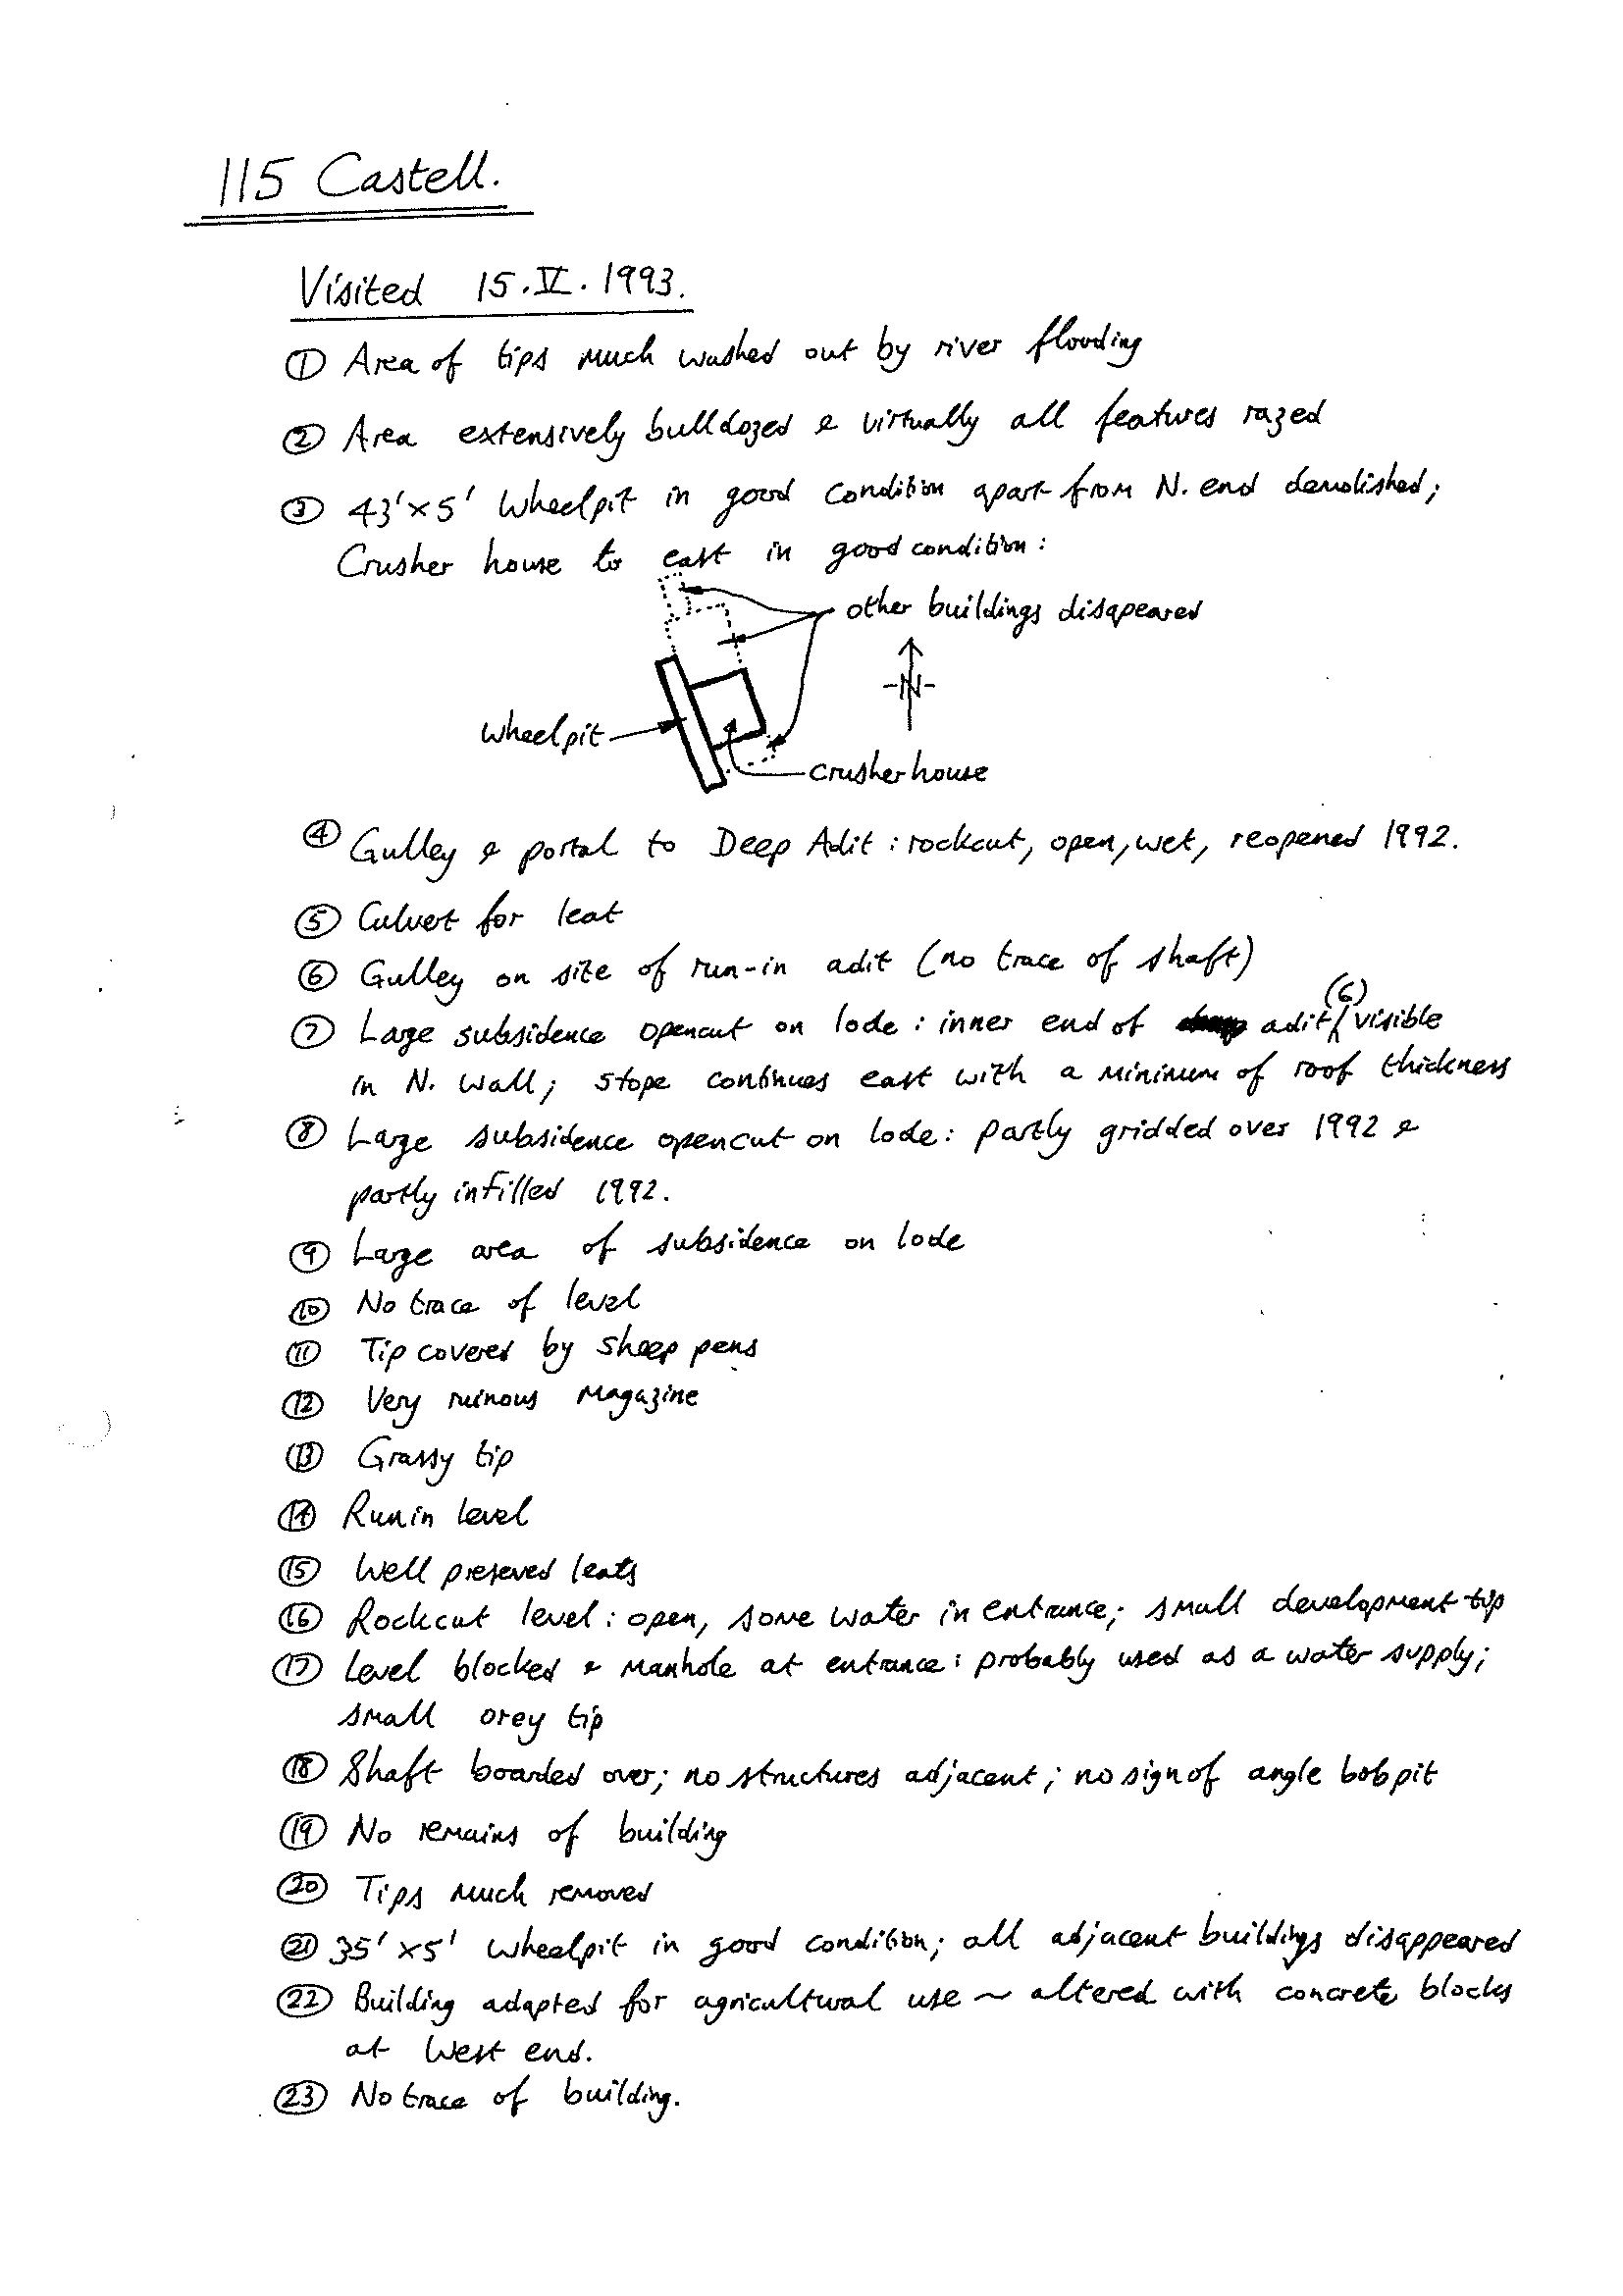 115 Castell.
Visited 15.V.1993.
① Area of tips much washed out by river flooding
② Area extensively bulldozed & virtually all features razed
③ 43' × 5' Wheelpit in good condition apart from N. end demolished;
Crusher house to east in good condition:
other buildings disapeared
-N-
Wheelpit
crusher house
④ Gulley & portal to Deep Adit: rockcut, open, wet, reopened 1992.
⑤ Culvert for leat
⑥ Gulley on site of run-in adit (no trace of shaft)
⑦ Large subsidence opencut on lode: inner end of adit (6) visible
in N. Wall; stope continues east with a minimum of roof thickness
⑧ Large subsidence opencut on lode: partly gridded over 1992 &
partly infilled 1992.
⑨ Large area of subsidence on lode
⑩ No trace of level
⑪ Tip covered by sheep pens
⑫ Very ruinous magazine
⑬ Grassy tip
⑭ Runin level
⑮ Well preseved leats
⑯ Rockcut level: open, some water in entrance; small development tip
⑰ Level blocked & manhole at entrance: probably used as a water supply;
small orey tip
⑱ Shaft boarded over; no structures adjacent; no sign of angle bob pit
⑲ No remains of building
⑳ Tips much removed
㉑ 35' × 5' Wheelpit in good condition; all adjacent buildings disappeared
㉒ Building adapted for agricultural use ~ altered with concrete blocks
at West end.
㉓ No trace of building.